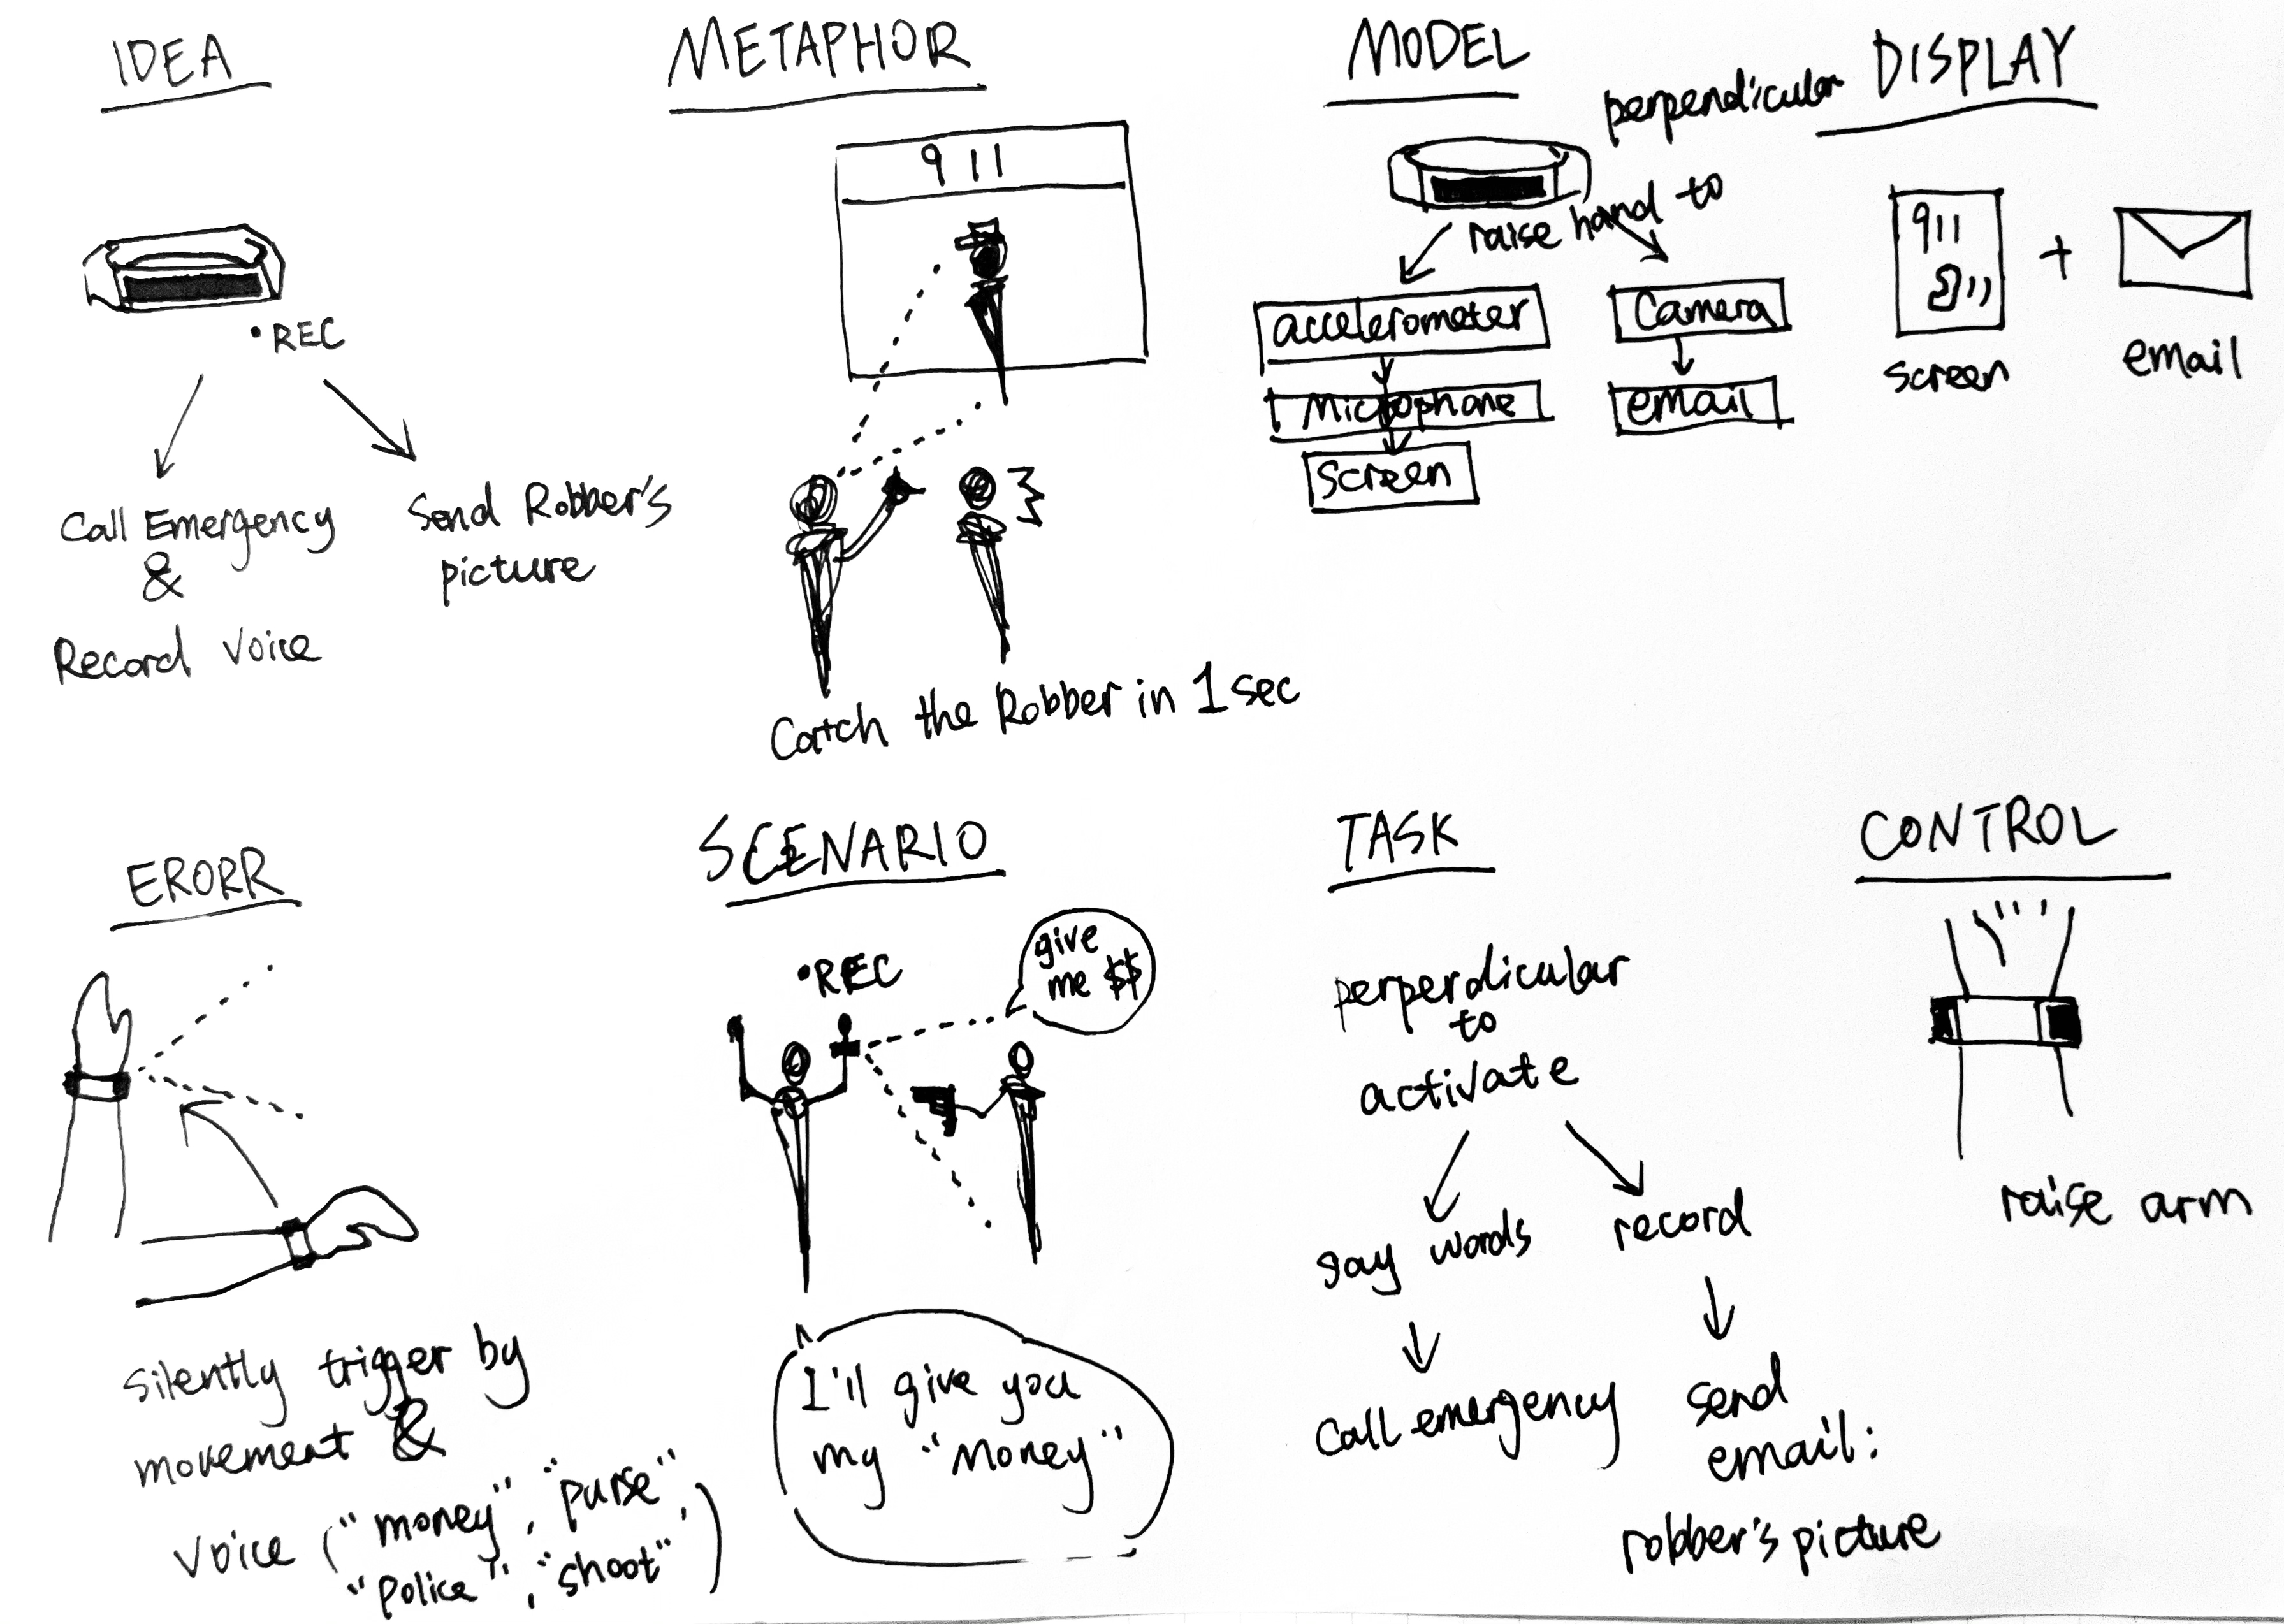 IDEA
•REC
Call Emergency
&
Record Voice
Send Robber's
picture
METAPHOR
911
Catch the Robber in 1 sec
MODEL
perpendicular
raise hand to
accelerometer
Microphone
Screen
Camera
email
DISPLAY
911
+
screen
email
ERORR
silently trigger by
movement &
voice ("money", "purse",
"police", "shoot")
SCENARIO
•REC
give
me $$
I'll give you
my "Money"
TASK
perperdicular
to
activate
say words
call emergency
record
send
email:
robber's picture
CONTROL
raise arm